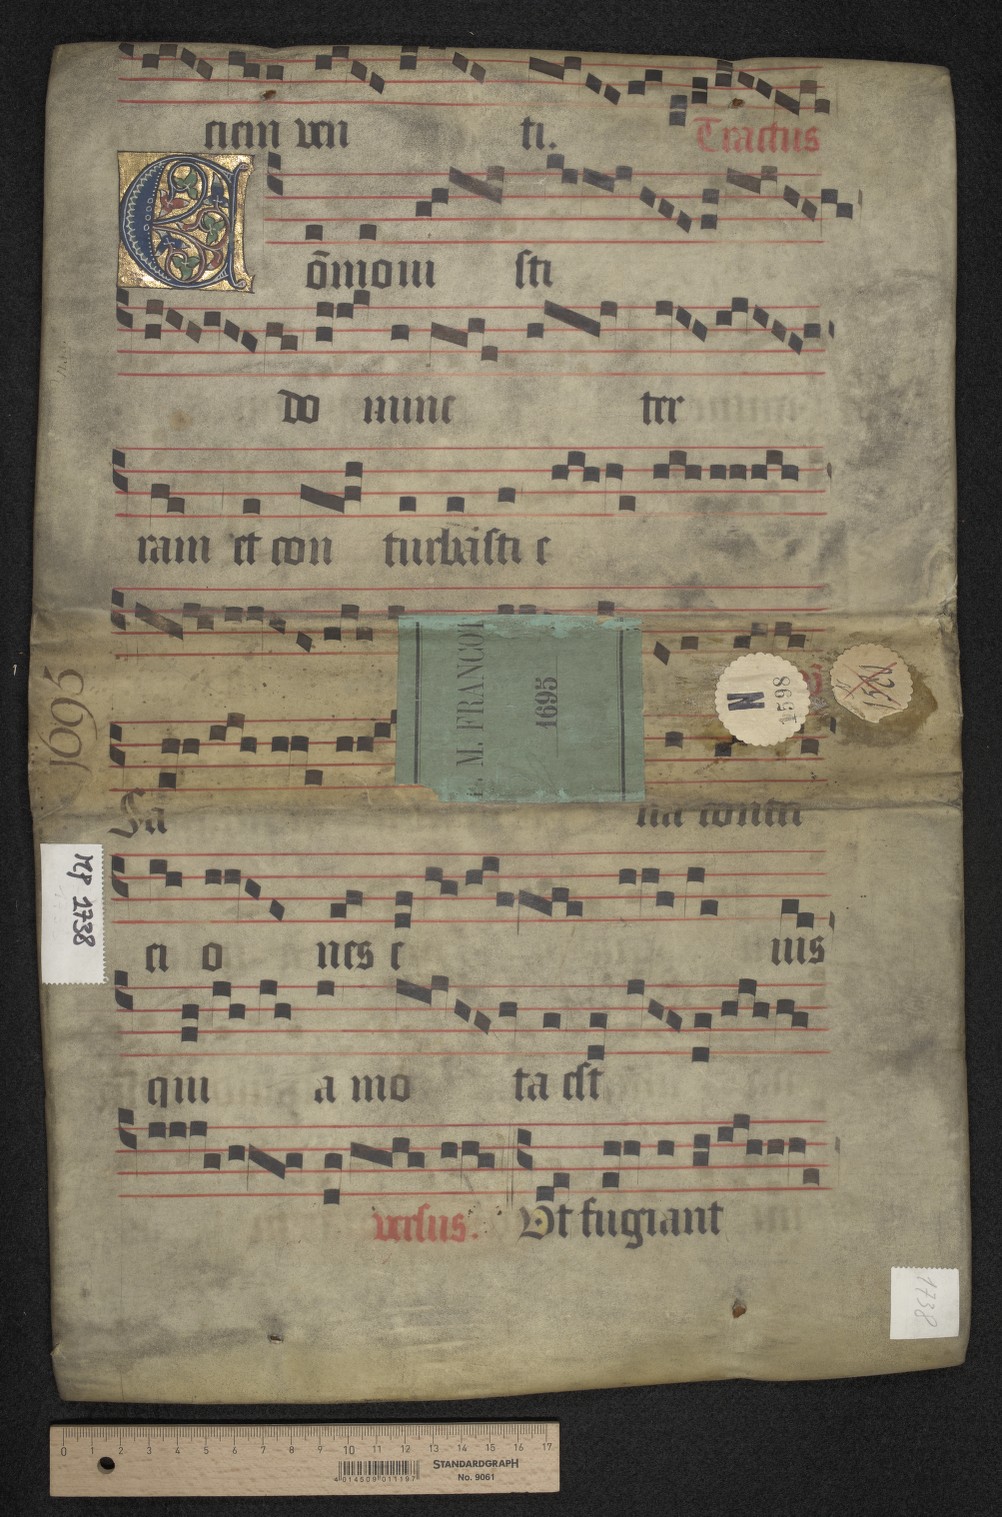 ciem uen ti. Tractus
Cōmoui sti
do mine ter
ram et con turbasti e
Sa na contri
ci o nes e ius
qui a mo ta est
uersus. Ut fugiant
1695
M. FRANCOF
1695
N
1598
MP 1738
1738
0 1 2 3 4 5 6 7 8 9 10 11 12 13 14 15 16 17
STANDARDGRAPH
No. 9061
4 014509 011197